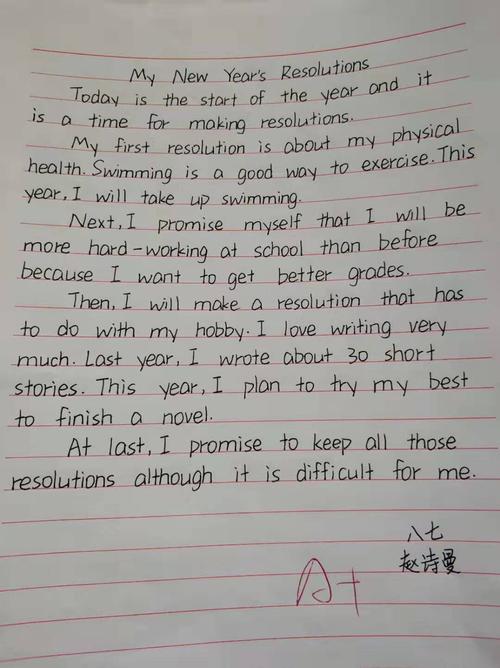 My New Year's Resolutions
Today is the start of the year and it
is a time for making resolutions.
My first resolution is about my physical
health. Swimming is a good way to exercise. This
year, I will take up swimming.
Next, I promise myself that I will be
more hard-working at school than before
because I want to get better grades.
Then, I will make a resolution that has
to do with my hobby. I love writing very
much. Last year, I wrote about 30 short
stories. This year, I plan to try my best
to finish a novel.
At last, I promise to keep all those
resolutions although it is difficult for me.
八七
赵诗曼
A+